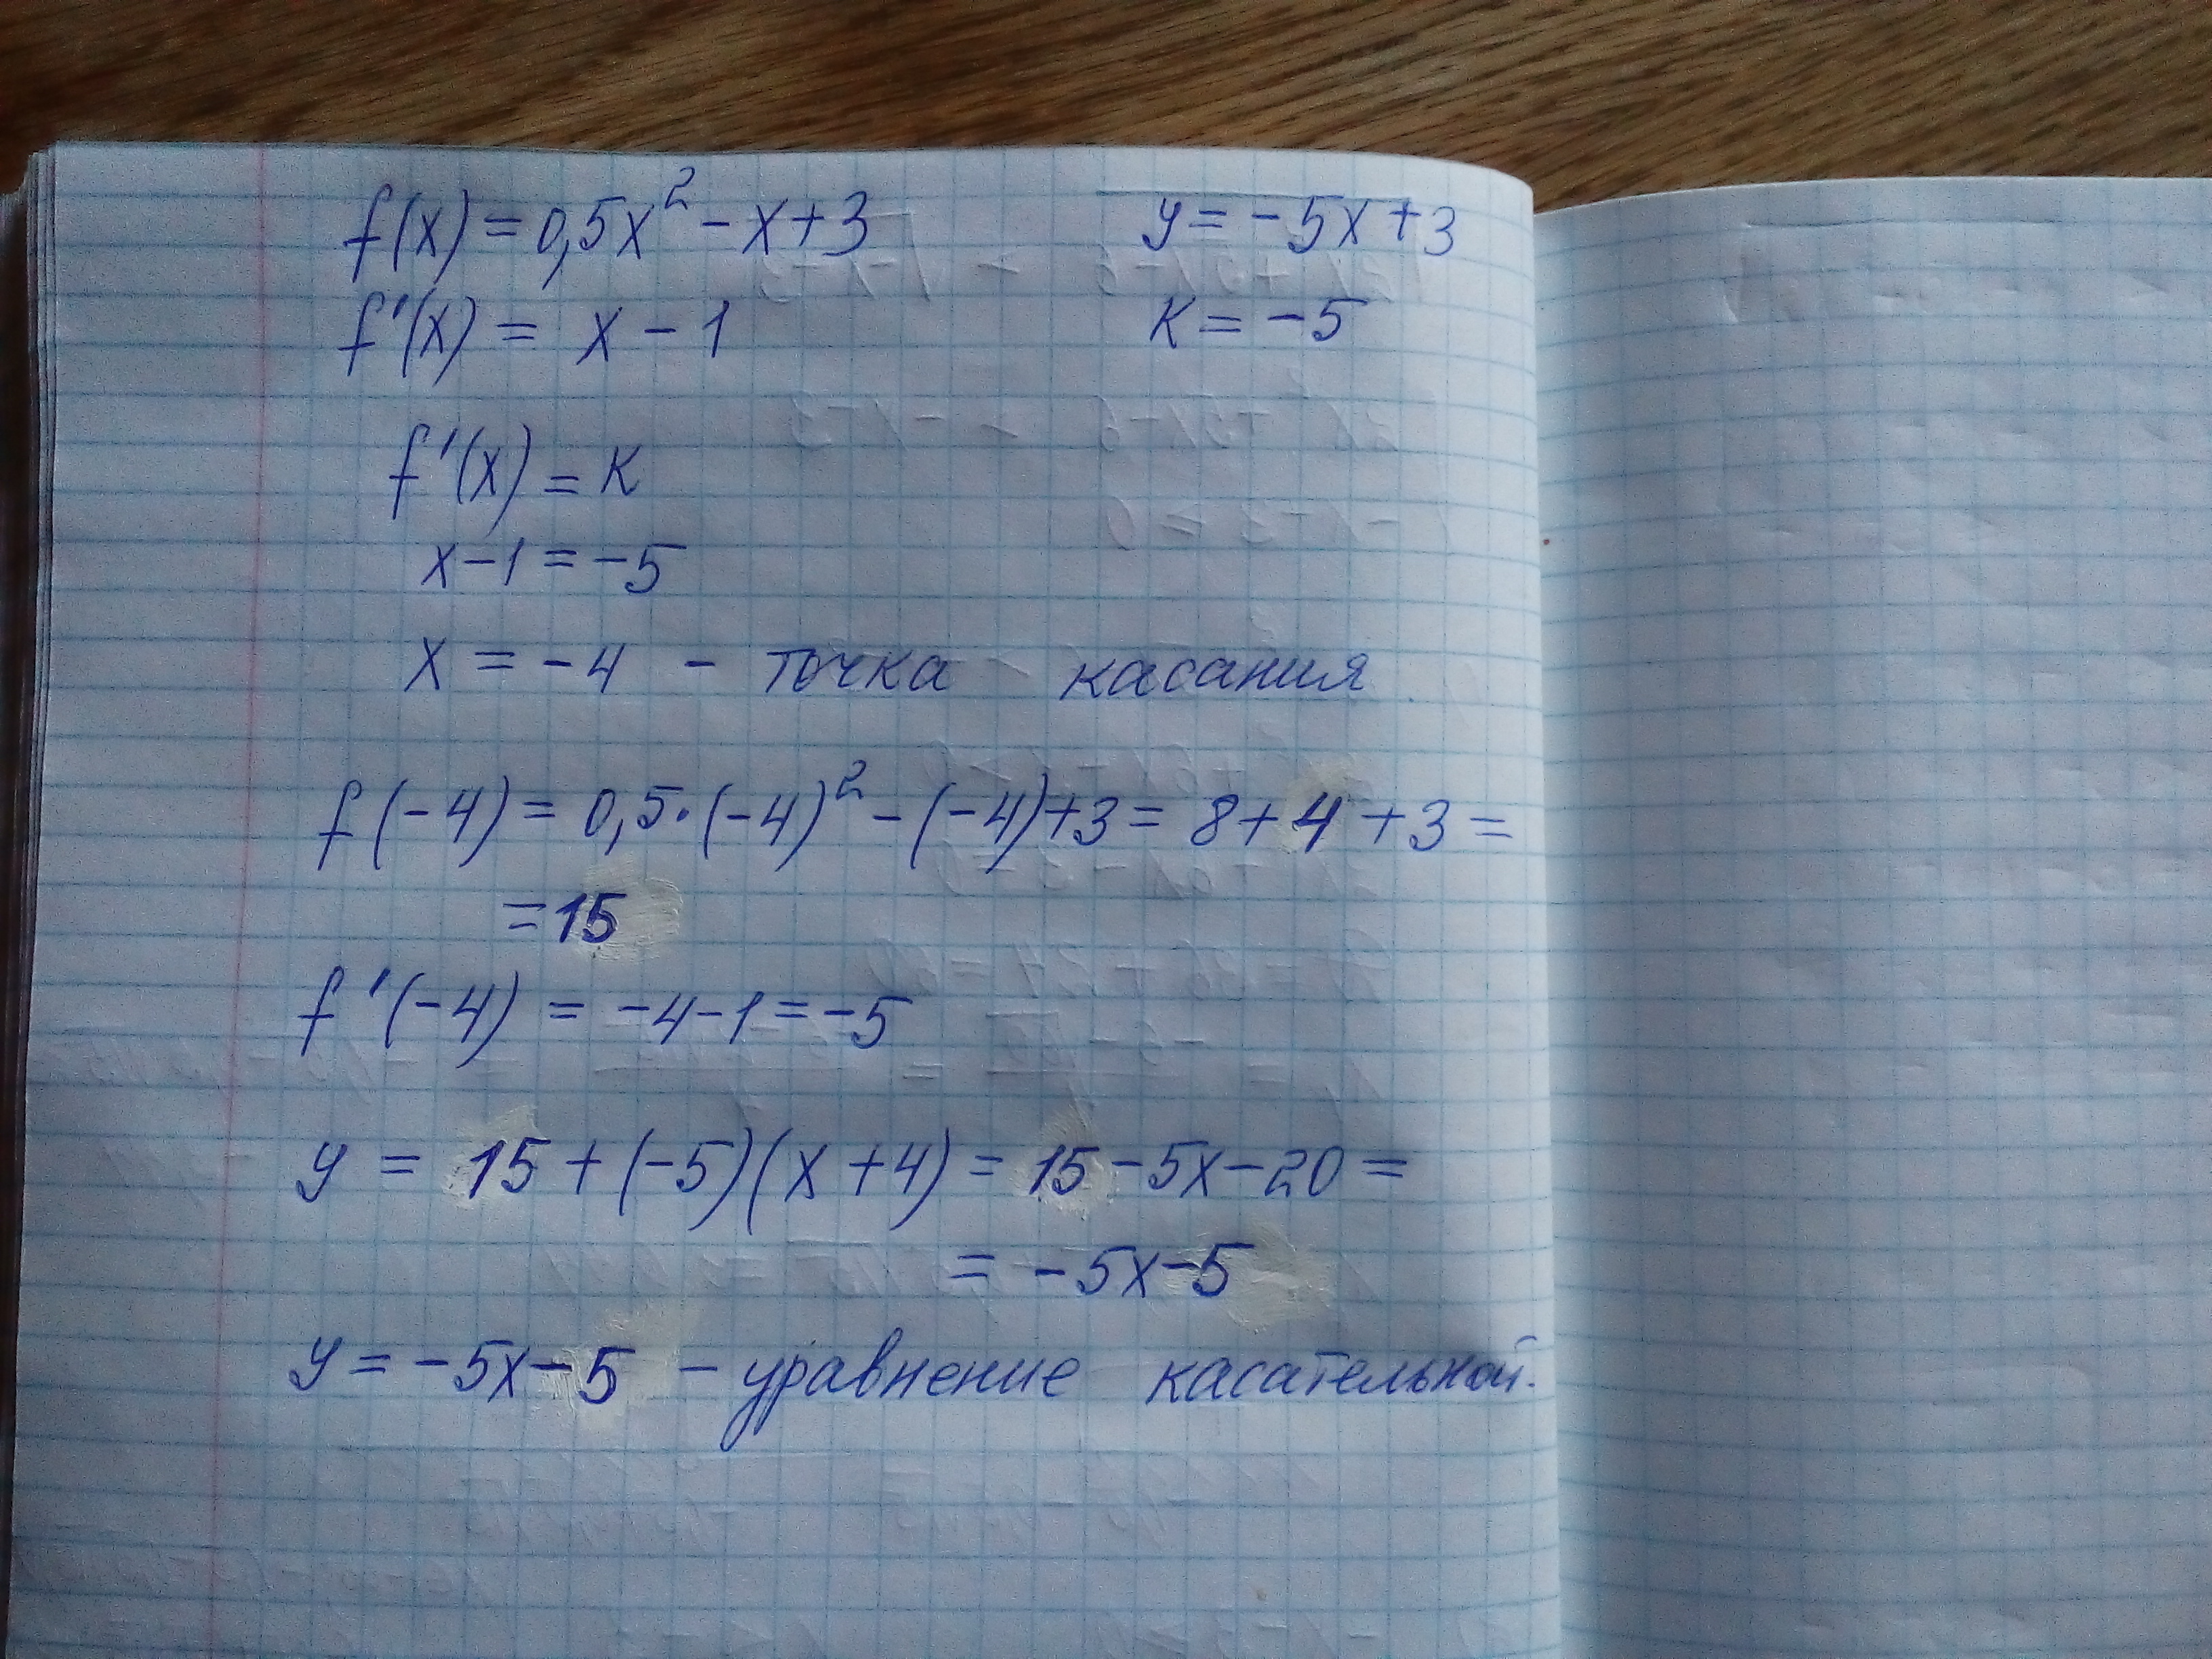 f(x) = 0,5x² - x + 3
y = -5x + 3
f'(x) = x - 1
K = -5
f'(x) = K
x - 1 = -5
x = -4 - точка касания
f(-4) = 0,5·(-4)² - (-4) + 3 = 8 + 4 + 3 =
= 15
f'(-4) = -4 - 1 = -5
y = 15 + (-5)(x + 4) = 15 - 5x - 20 =
= -5x - 5
y = -5x - 5 - уравнение касательной.